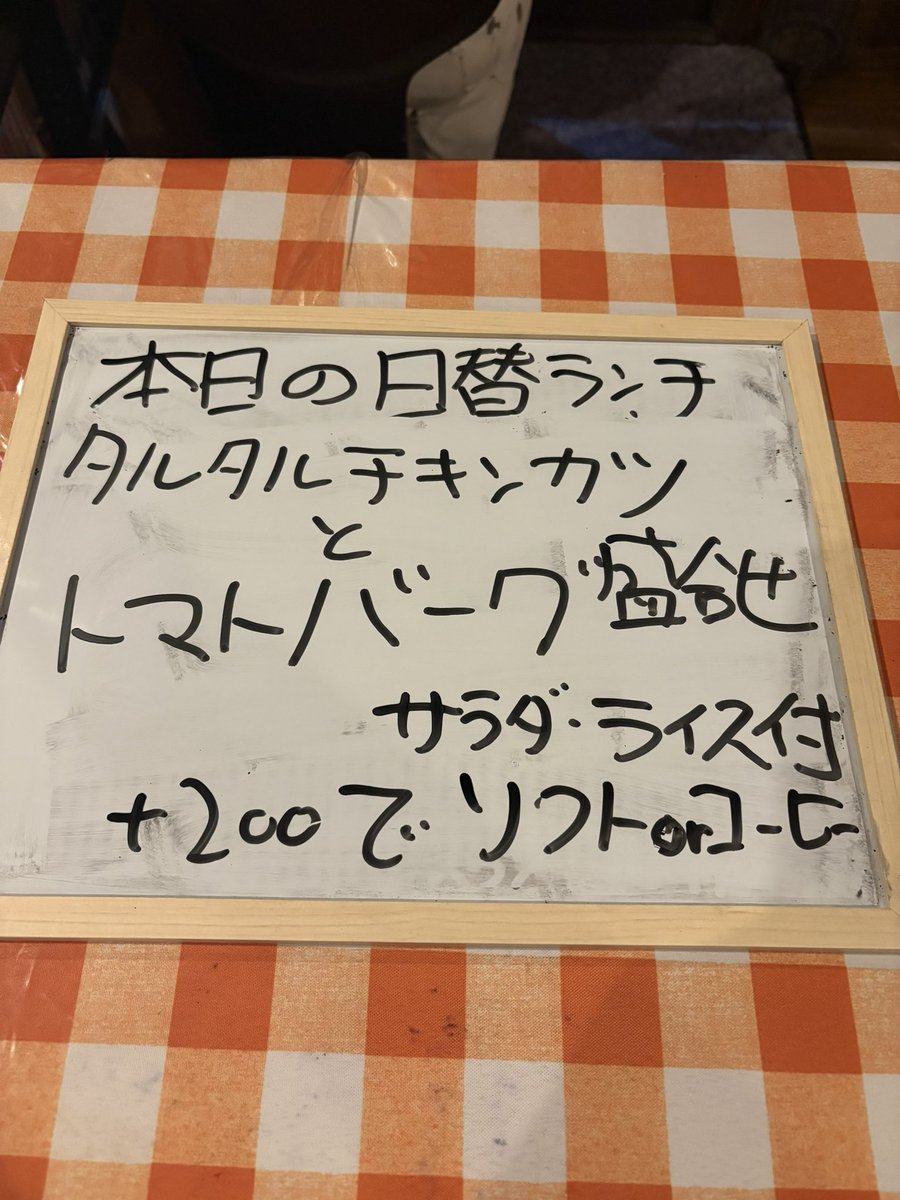 本日の日替ランチ
タルタルチキンカツ
と
トマトハンバーグ盛合せ
サラダ・ライス付
+200でソフトorコーヒー